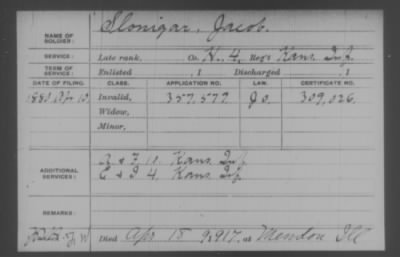 NAME OF SOLDIER: Slonigar, Jacob.
SERVICE: Late rank, Co. H. 4, Reg't Kans. Inf.
TERM OF SERVICE: Enlisted , 1 Discharged , 1
DATE OF FILING. CLASS. APPLICATION NO. LAW. CERTIFICATE NO.
1880 Apr 10 Invalid, 357.579. 309,026.
Widow,
Minor,
ADDITIONAL SERVICES: Kans. Inf.
4, Kans. Inf.
REMARKS:
Died Apr 15 1917. at Mendon Ill